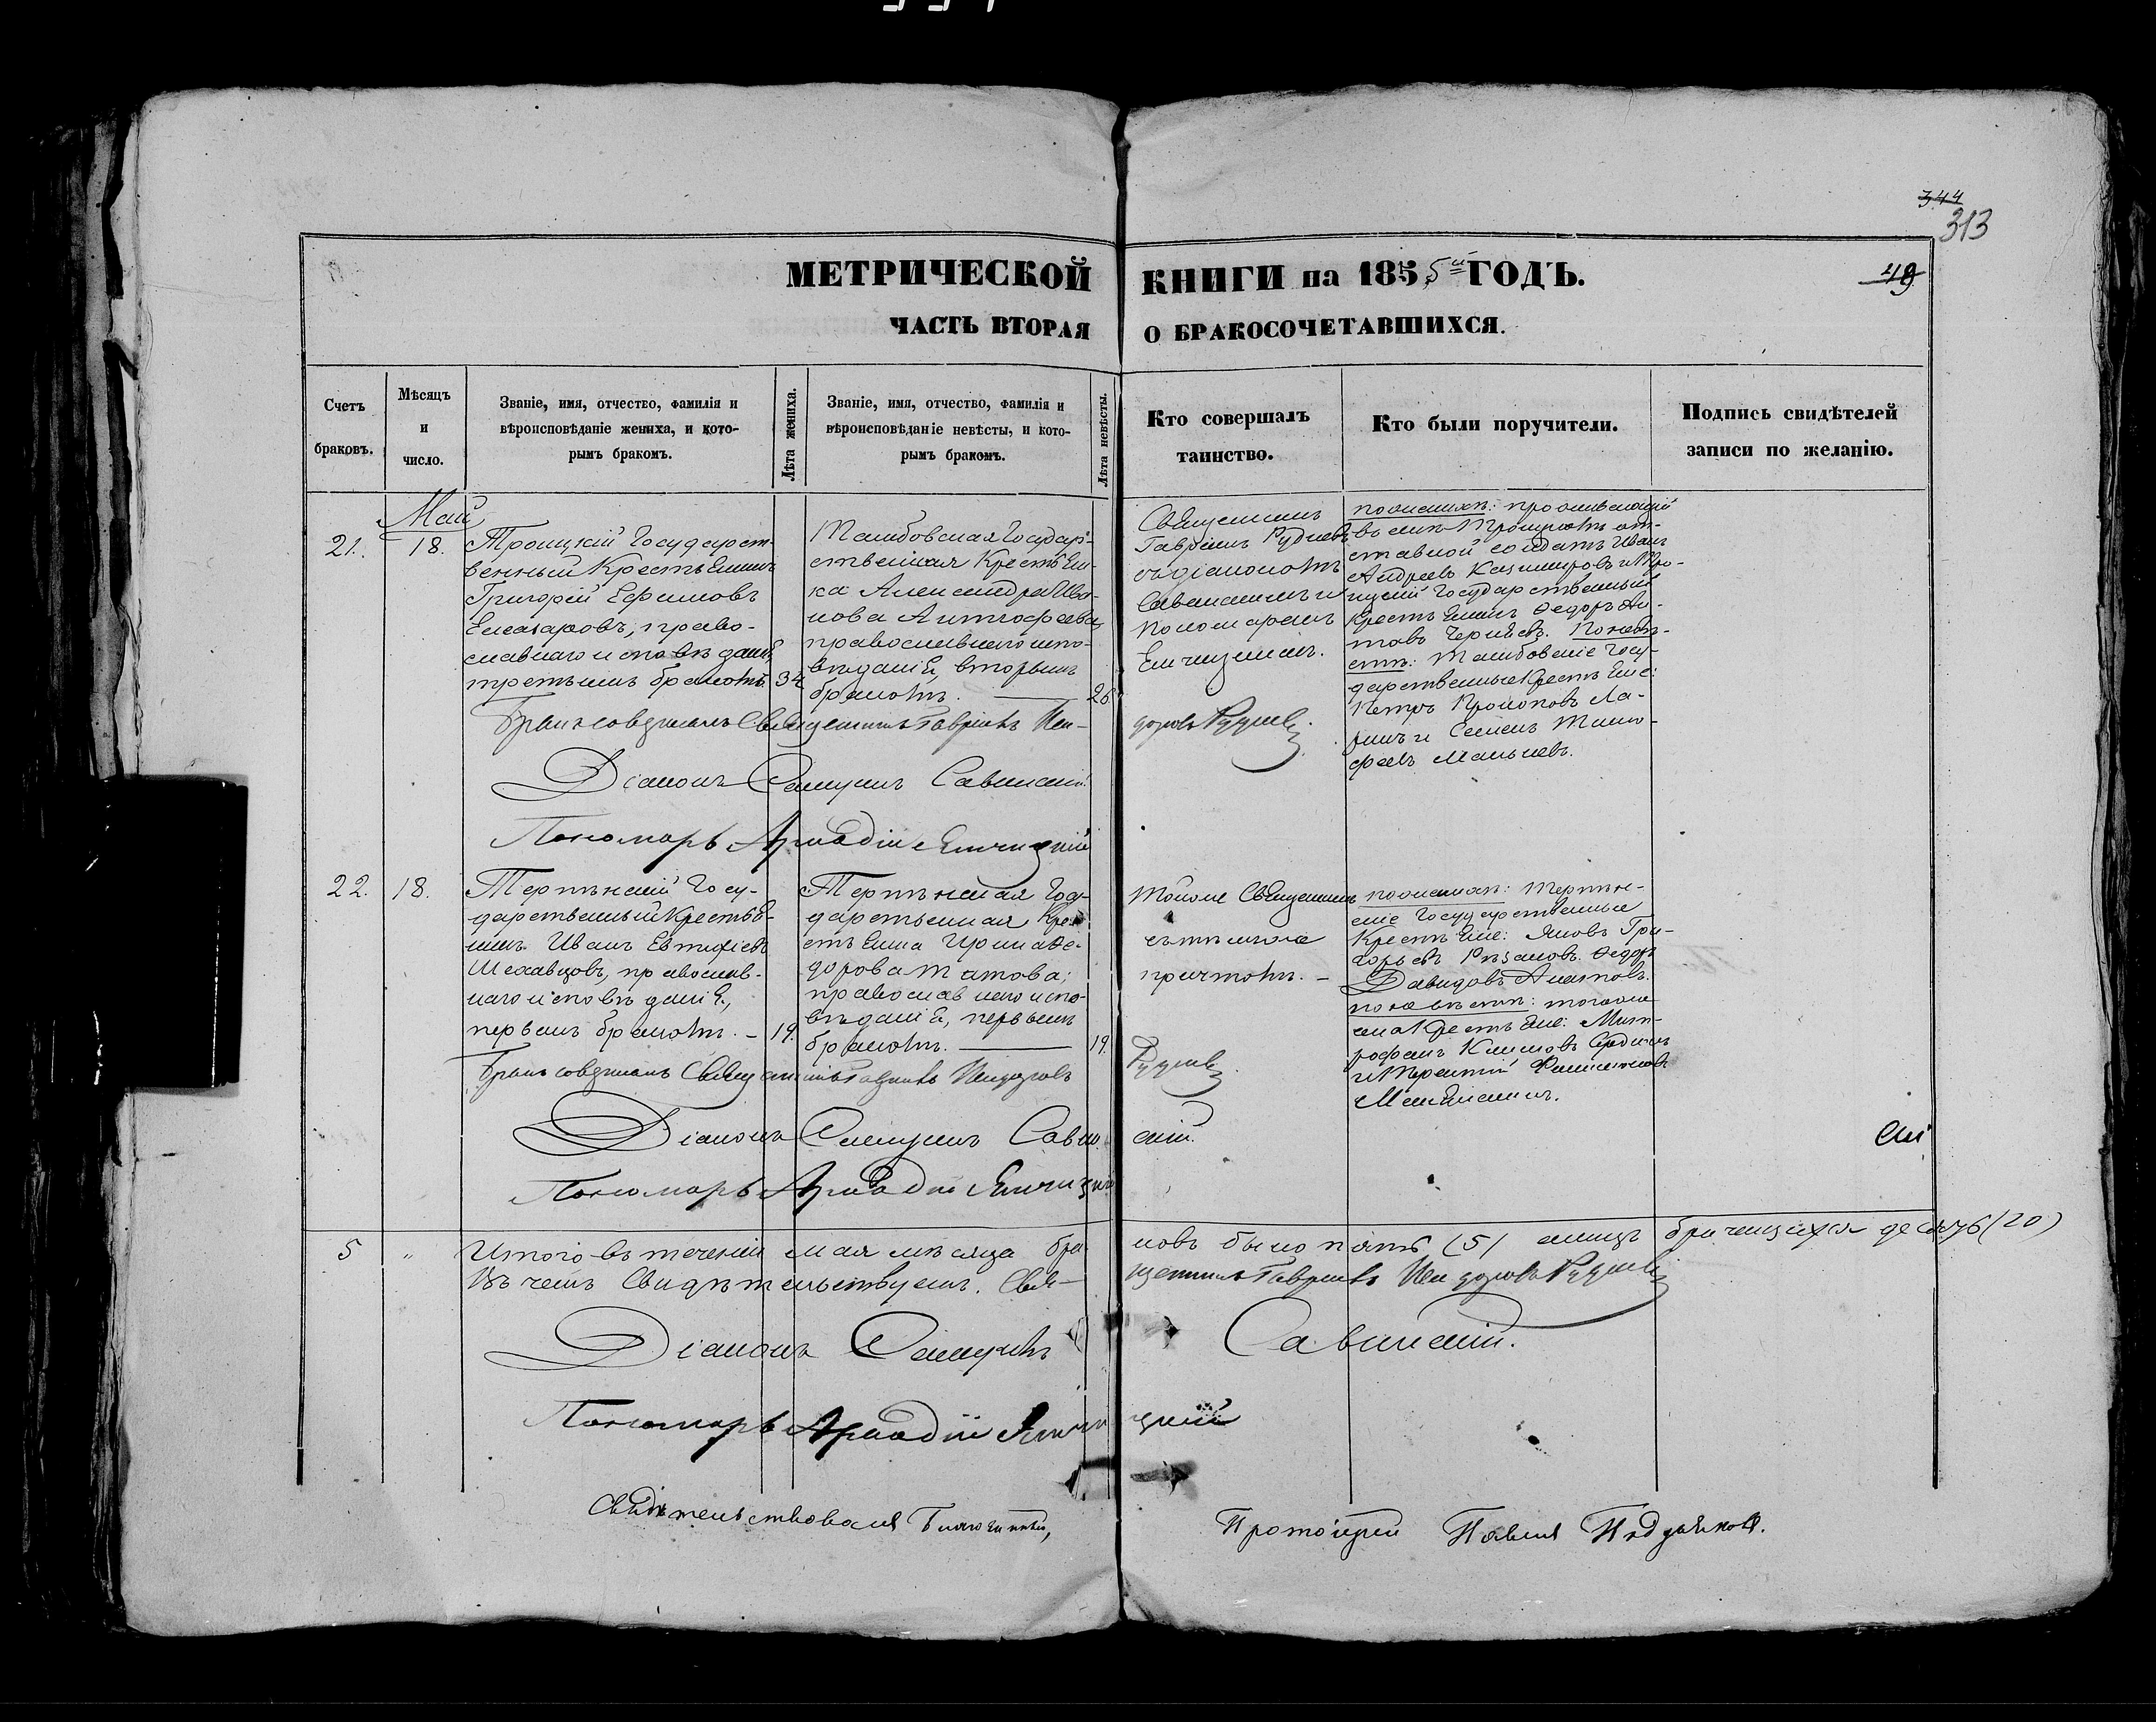 344
313
МЕТРИЧЕСКОЙ КНИГИ на 1855й ГОДЪ.
49
ЧАСТЬ ВТОРАЯ О БРАКОСОЧЕТАВШИХСЯ.
Счетъ
браковъ.
Мѣсяцъ
и
число.
Званіе, имя, отчество, фамилія и
вѣроисповѣданіе жениха, и кото-
рымъ бракомъ.
Лѣта жениха.
Званіе, имя, отчество, фамилія и
вѣроисповѣданіе невѣсты, и кото-
рымъ бракомъ.
Лѣта невѣсты.
Кто совершалъ
таинство.
Кто были поручители.
Подпись свидѣтелей
записи по желанію.
Май
21.
18.
Троицкій Государст-
венный Крестьянинъ
Григорій Ефимовъ
Елеазаровъ, право-
славнаго исповѣданія,
третьимъ бракомъ
34
Тамбовская Государ-
ственная Крестьян-
ка Александра Ива-
нова
православнаго испо-
вѣданія, вторымъ
бракомъ.
26.
Священникъ
Гавріилъ Рудневъ
съ діакономъ
Савинскимъ и
пономаремъ
по женихѣ: проживающій
въ селѣ Троицкомъ от-
ставной солдатъ Иванъ
Андреевъ Казимировъ и Тро-
ицкій Государственный
Крестьянинъ Ѳедоръ Ан-
товъ Черняевъ. По невѣ-
стѣ: Тамбовскіе Госу-
дарственные Крестьяне:
Петръ Прокоповъ Ла-
ринъ и Семенъ Тимо-
феевъ Мальцевъ.
Бракъ совершалъ Священникъ Гавріилъ Иси-
доровъ Рудневъ.
Діаконъ Сампсонъ Савинскій
Пономарь Аркадій
22.
18.
Госу-
дарственный Крестья-
нинъ Иванъ Евтифіевъ
Шехавцовъ, православ-
наго исповѣданія,
первымъ бракомъ. –
19.
Госу-
дарственная Кре-
стьянка Ирина Ѳе-
дорова Татова;
православнаго испо-
вѣданія, первымъ
бракомъ.
19.
Тойже Священникъ
съ тѣмъ же
причтомъ. –
по женихѣ:
Государственные
Крестьяне: Яковъ Гри-
горьевъ Рязановъ. Ѳедоръ
Давидовъ
по невѣстѣ: тогоже
села Крестьяне: Мит-
рофанъ Климовъ
и Терентій
Бракъ совершалъ Священникъ Гавріилъ Исидоровъ
Рудневъ.
Діаконъ Сампсонъ Савин-
скій.
Пономарь Аркадій
5 " Итого въ теченіи мая мѣсяца бра-
ковъ было пять (5) лицъ
(20)
Въ чемъ Свидѣтельствуемъ. Свя-
щенникъ Гавріилъ Исидоровъ Рудневъ
Діаконъ Сампсонъ Савинскій.
Пономарь Аркадій
Свидѣтельствовалъ Благочинный,
Протоіерей Павелъ Подъяковъ.